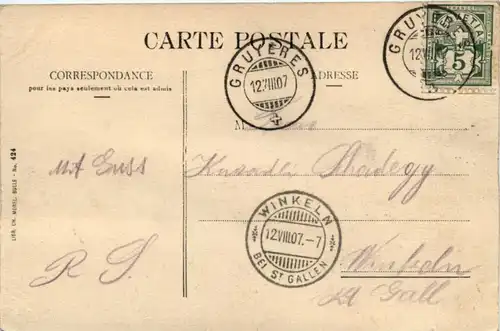 CARTE POSTALE
CORRESPONDANCE
pour les pays seulement où cela est admis
ADRESSE
GRUYERES
12.VIII.07
GRUYERES
12.VIII
5
M
Mit Gruss
R. S.
WINKELN
12.VIII.07.-7
BEI ST GALLEN
Winkeln
St Gall
No. 424